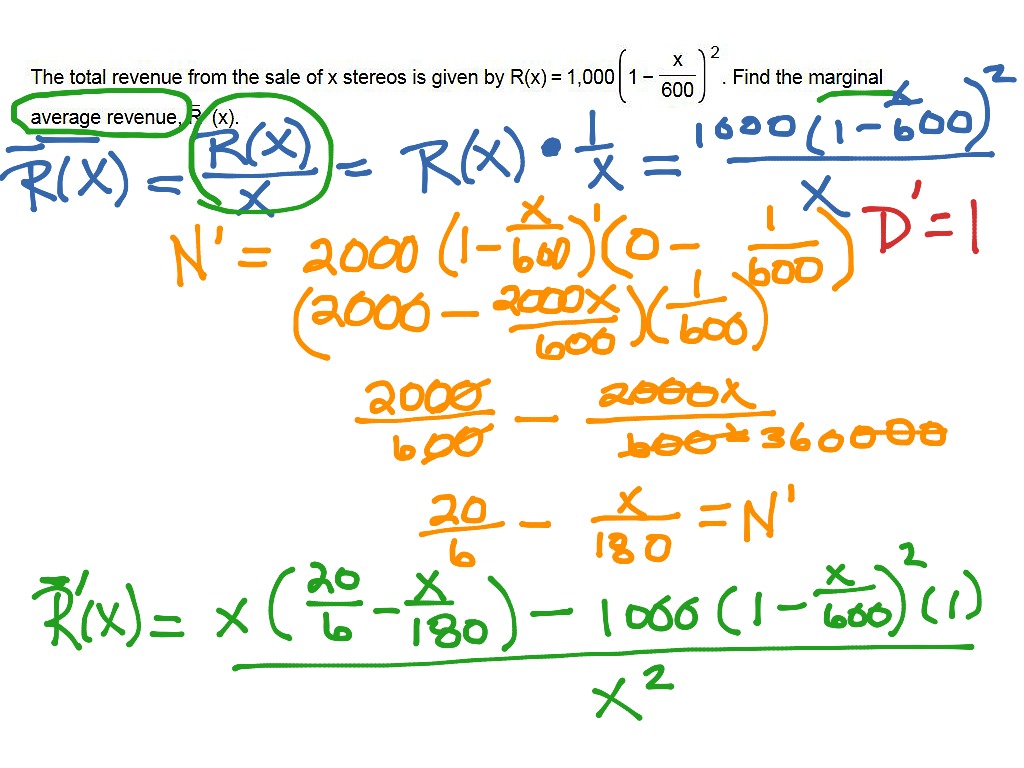 The total revenue from the sale of x stereos is given by R(x) = 1,000(1 − x/600)². Find the marginal
average revenue, R̅′(x).
R̅(X) = R(X)/X = R(X) • 1/X = 1000(1 − x/600)²/X
D' = 1
N' = 2000(1 − x/600)¹(0 − 1/600)
(2000 − 2000X/600)(1/600)
2000/600 − 2000X/600² 360000
20/6 − X/180 = N'
R̅'(X) = x(20/6 − X/180) − 1000(1 − x/600)²(1)/X²